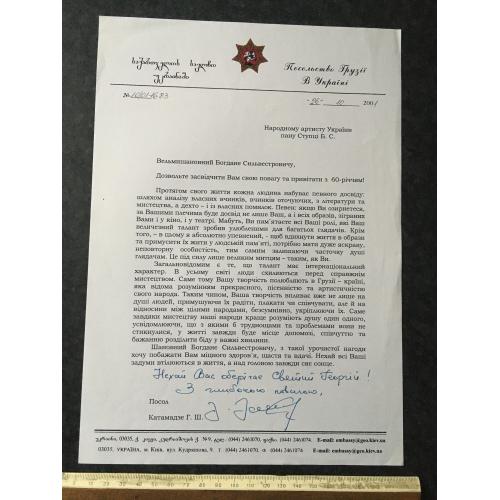 საქართველოს საელჩო
უკრაინაში
Посольство Грузії
В Україні
№
"26" 10 200
Народному артисту України
пану Ступці Б. С.
Вельмишановний Богдане Сильвестровичу,
Дозвольте засвідчити Вам свою повагу та привітати з 60-річчям!
Протягом свого життя кожна людина набуває певного досвіду:
шляхом аналізу власних вчинків, вчинків оточуючих, з літератури та
мистецтва, а дехто – і із власних помилок. Певен: якщо Ви озирнетеся,
за Вашими плечима буде досвід не лише Ваш, а і всіх образів, зіграних
Вами і у кіно, і у театрі. Мабуть, Ви пам'ятаєте всі Ваші ролі, які Ваш
величезний талант зробив улюбленими для багатьох глядачів. Крім
того, – в цьому я абсолютно упевнений, - щоб вдихнути життя в образи
та примусити їх жити у людській пам'яті, потрібно мати дуже яскраву,
неповторну особистість, тим самим залишаючи часточку душі
глядачам. Це під силу лише великим митцям – таким, як Ви.
Загальновідомим є те, що талант має інтернаціональний
характер. В усьому світі люди схиляються перед справжнім
мистецтвом. Саме тому Вашу творчість полюбляють в Грузії – країні,
яка відома розумінням прекрасного, пісенністю та артистичністю
свого народа. Таким чином, Ваша творчість впливає вже не лише на
душі людей, примушуючи їх радіти, плакати чи співчувати, але й на
відносини між цілими народами, безсумнівно, укріплюючи їх. Саме
завдяки мистецтву наші народи краще розуміють душу один одного,
усвідомлюючи, що з якими б труднощами та проблемами вони не
стикнулися, у житті завжди буде місце допомозі, співчуттю та
бажанню розділити біду у важкі хвилини.
Шановний Богдане Сильвестровичу, з такої урочистої нагоди
хочу побажати Вам міцного здоров'я, щастя та вдачі. Нехай всі Ваші
задуми втілюються в життя, а над головою завжди сяє сонце.
Нехай Вас оберігає Святий Георгій!
З глибокою повагою,
Посол
Катамадзе Г. Ш.
E-mail: embassy@geo.kiev.ua
03035, УКРАЇНА, м. Київ, вул. Кудряшова, 9. т. (044) 2461070, факс. (044) 2461074 E-mail: embassy@geo.kiev.ua